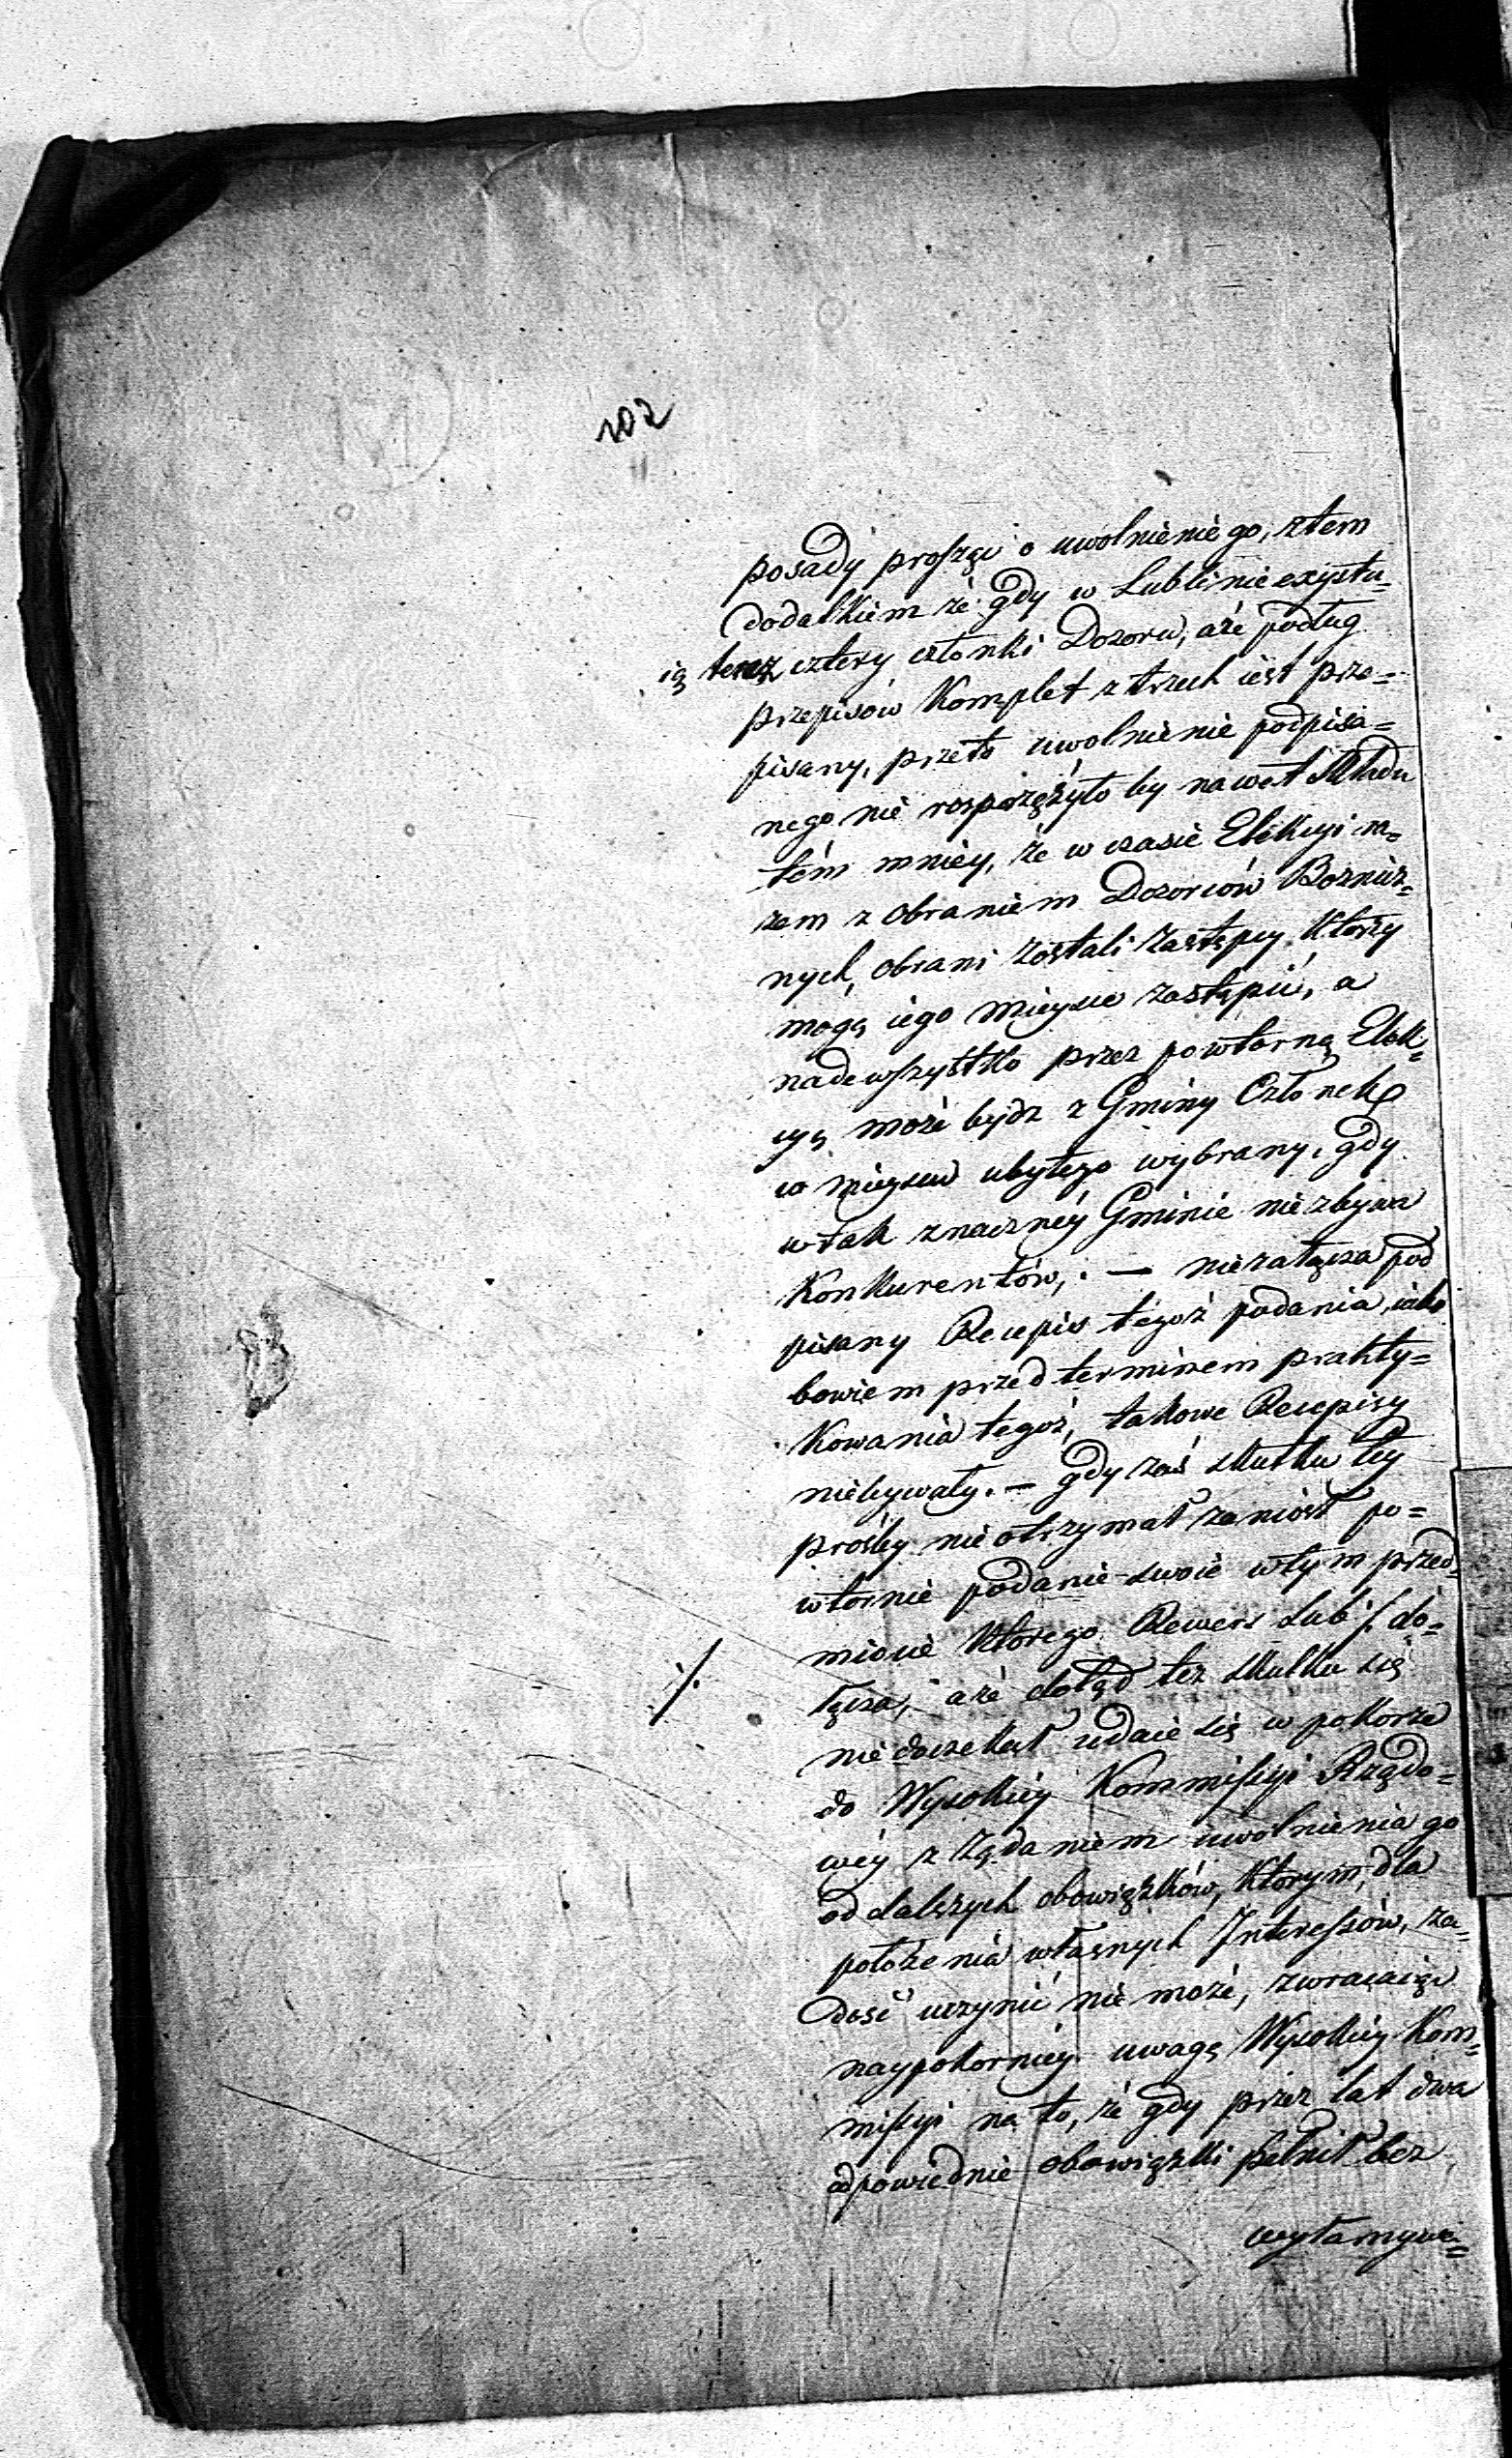 102
posady prosząc o uwolnienie go, z tem
dodatkiem że gdy w Lublinie exystu-
ią teraz cztery członki Dozoru, a że podług
przepisów Komplet z trzech iest prze=
pisany, przeto uwolnienie podpisa=
nego nie rosprzężyło by nawet Składu
tém mniey, że w czasie Elekcyi ra=
zem z obraniem Dozorców Boznicz=
nych, obrani zostali Zastępcy Którzy
mogą iego mieysce zastąpić, a
nadewszystko przez powtorną Elek=
cyą może bydz z Gminy Członek
w mieysce ubyłego wybrany, gdy
w tak znaczney Gminie nie zbywa
Konkurentów, . — nie załącza pod
pisany Recepis tegoż podania, iako
bowiem przed terminem prakty=
Kowania tegoż, takowe Recepisy
niebywały. — gdy zaś skutku tey
prośby nie otrzymał zaniósł po=
wtornie podanie swoie w tym przed=
miocie Którego Rewers Lub ./. do=
./.
łącza, a że dotąd też skutku się
nie doczekał udaie się w pokorze
do Wysokiey Kommissyi Rządo=
wéy z Żądaniem uwolnienia go
od dalszych obowiązków, Którym, dla
położenia własnych Interessów, za=
dosć uczynić nie może, zwracaiąc
naypokorniey uwagę Wysokiey Kom=
missyi na to, że gdy przez lat dwa
odpowiednie obowiązki pełnił bez
wyłamywa=